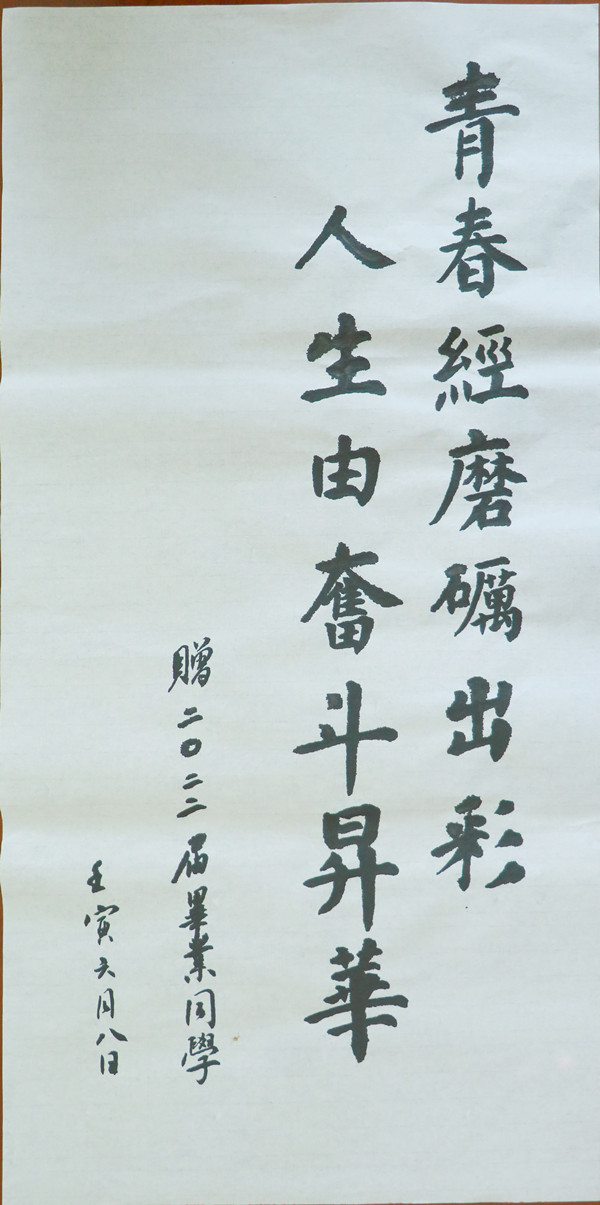 青春經磨礪出彩
人生由奮斗昇華
贈二〇二二届畢業同學
壬寅六月八日